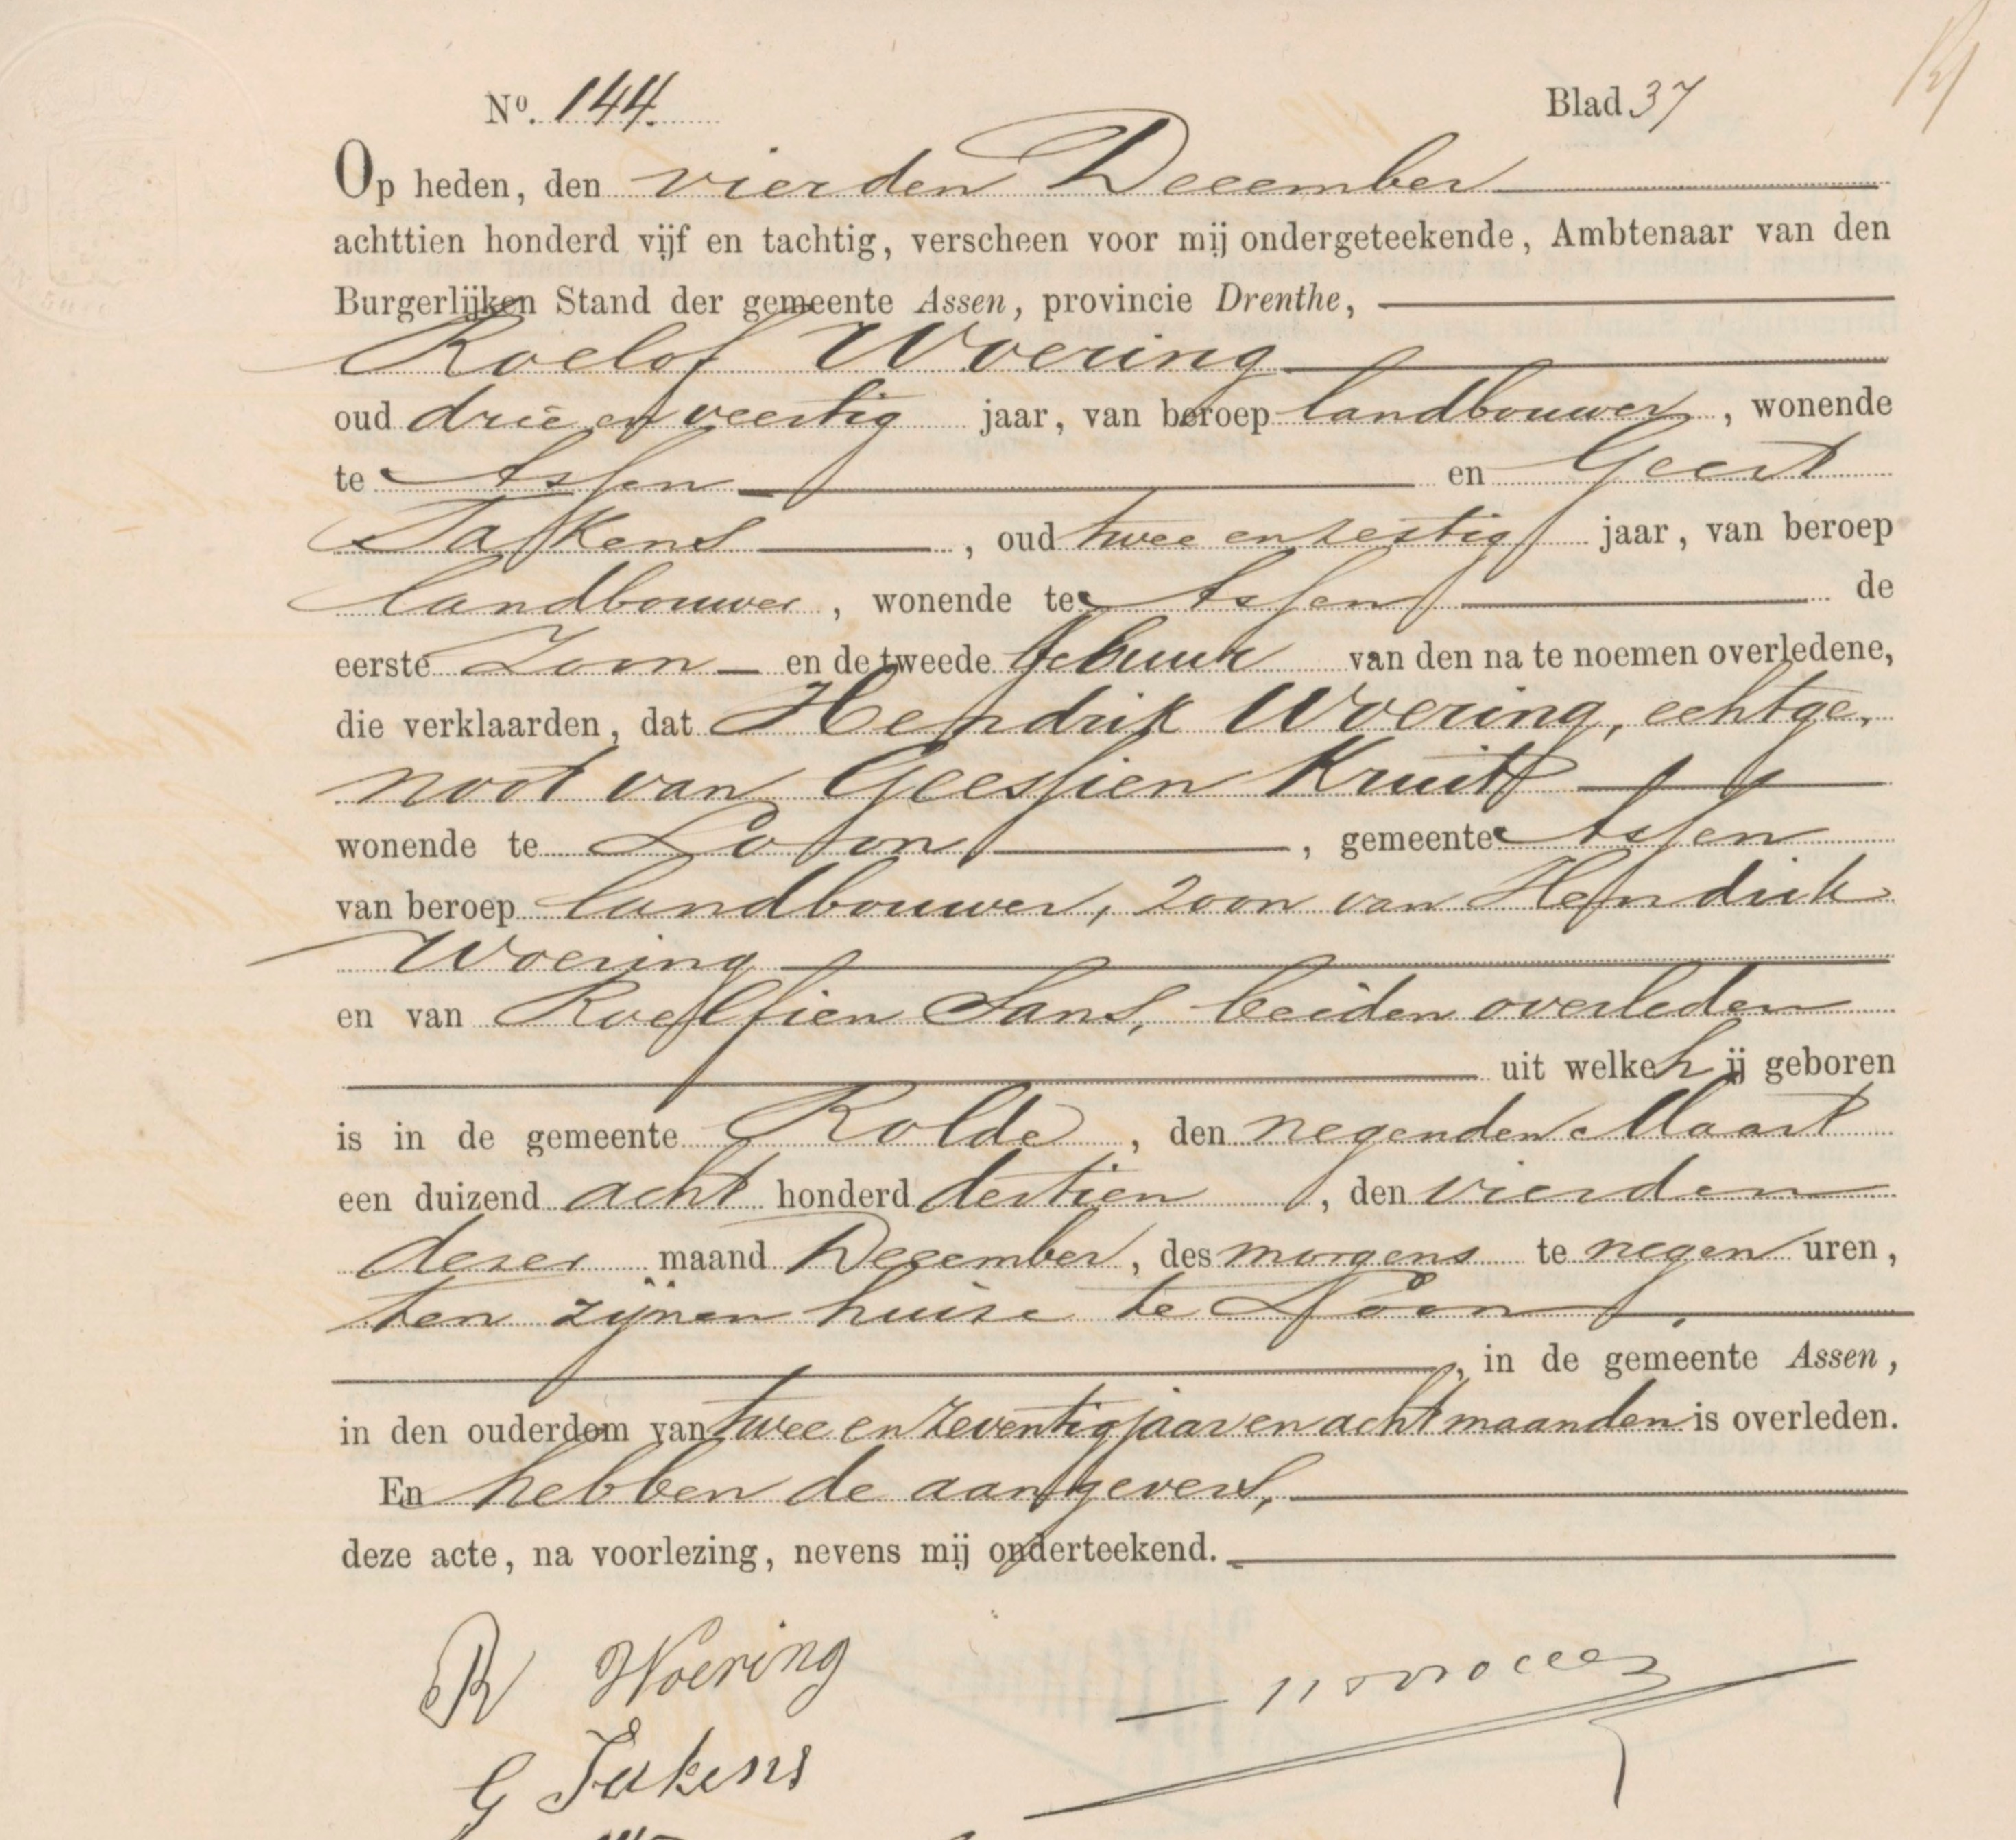 Nº. 144. Blad 37
Op heden, den vierden December
achttien honderd vijf en tachtig, verscheen voor mij ondergeteekende, Ambtenaar van den
Burgerlijken Stand der gemeente Assen, provincie Drenthe,
Roelof Woering
oud drie en veertig jaar, van beroep landbouwer, wonende
te Assen en Geert
Takens, oud twee en zestig jaar, van beroep
landbouwer, wonende te Assen de
eerste Zoon en de tweede Gebuur van den na te noemen overledene,
die verklaarden, dat Hendrik Woering, echtge-
noot van Geessien Kruit
wonende te Loon, gemeente Assen
van beroep landbouwer, zoon van Hendrik
Woering
en van Roelfien Sans, beiden overleden
uit welke hij geboren
is in de gemeente Rolde, den negenden Maart
een duizend acht honderd dertien, den vierden
dezer maand December, des morgens te negen uren,
ten zijnen huize te Loon
, in de gemeente Assen,
in den ouderdom van twee en zeventig jaar en acht maanden is overleden.
En hebben de aangevers,
deze acte, na voorlezing, nevens mij onderteekend.
R Woering
G Takens